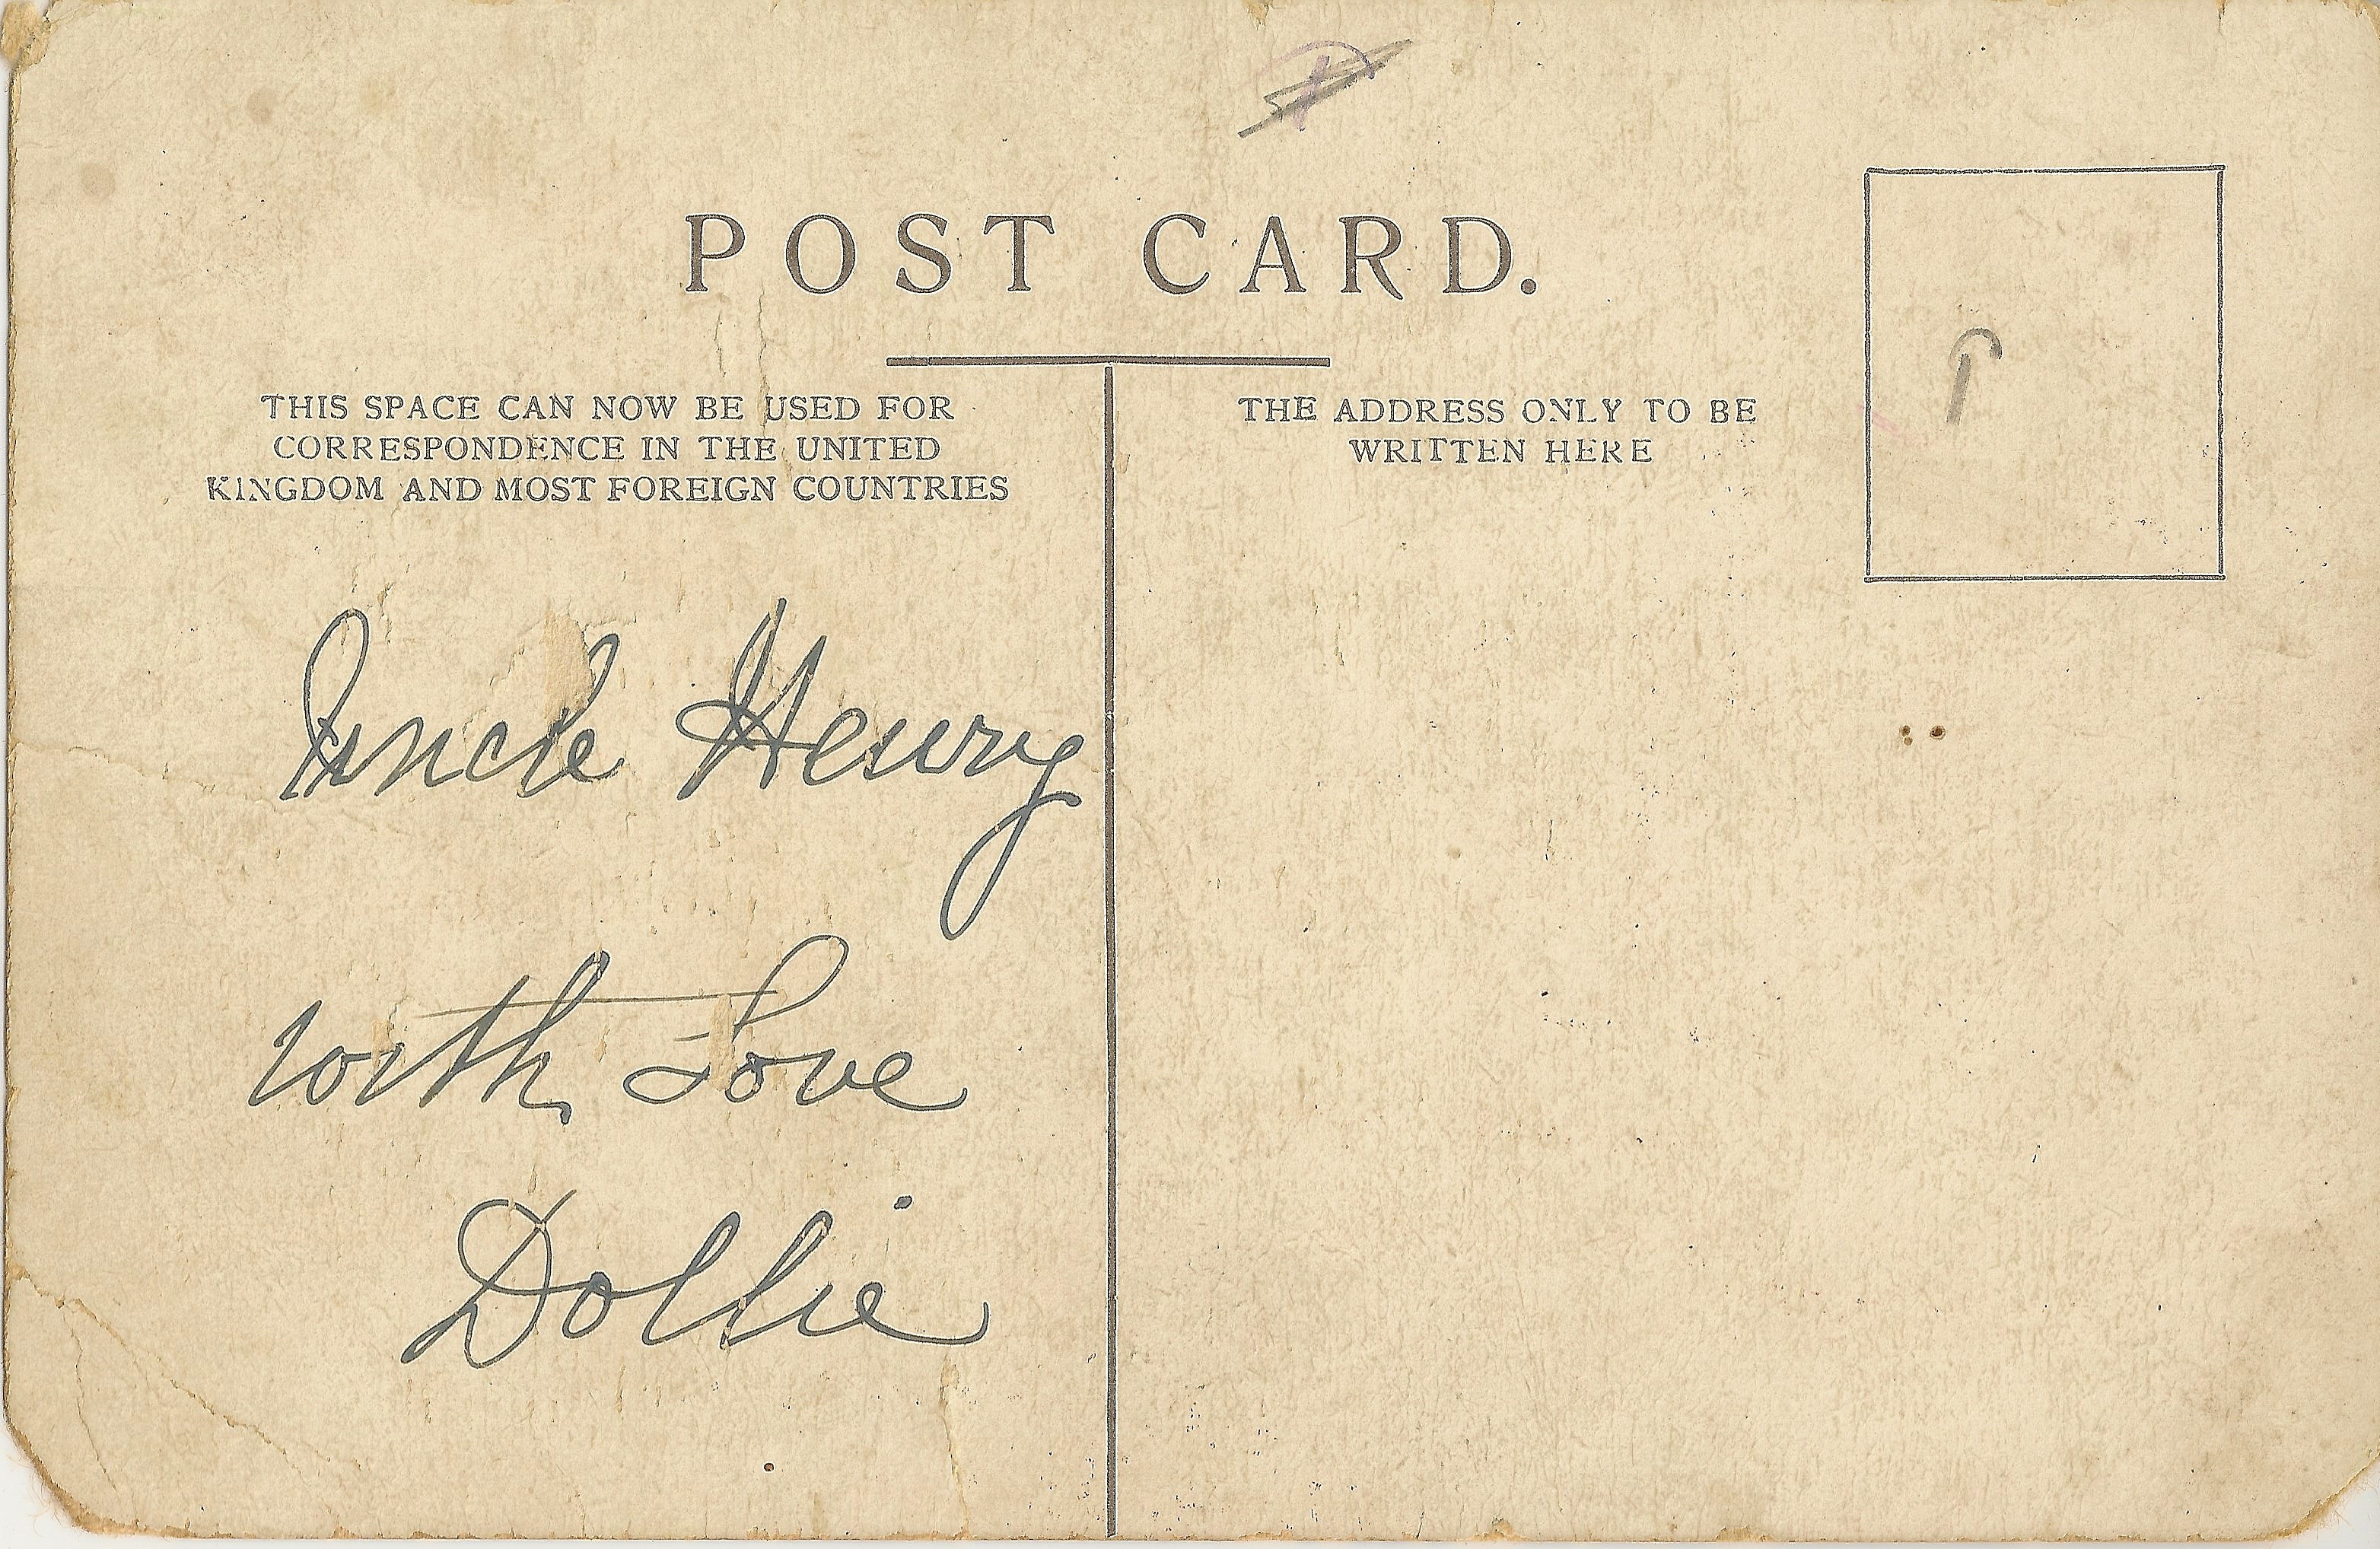 POST CARD.
THIS SPACE CAN NOW BE USED FOR
CORRESPONDENCE IN THE UNITED
KINGDOM AND MOST FOREIGN COUNTRIES
THE ADDRESS ONLY TO BE
WRITTEN HERE
Uncle Henry
with Love
Dollie